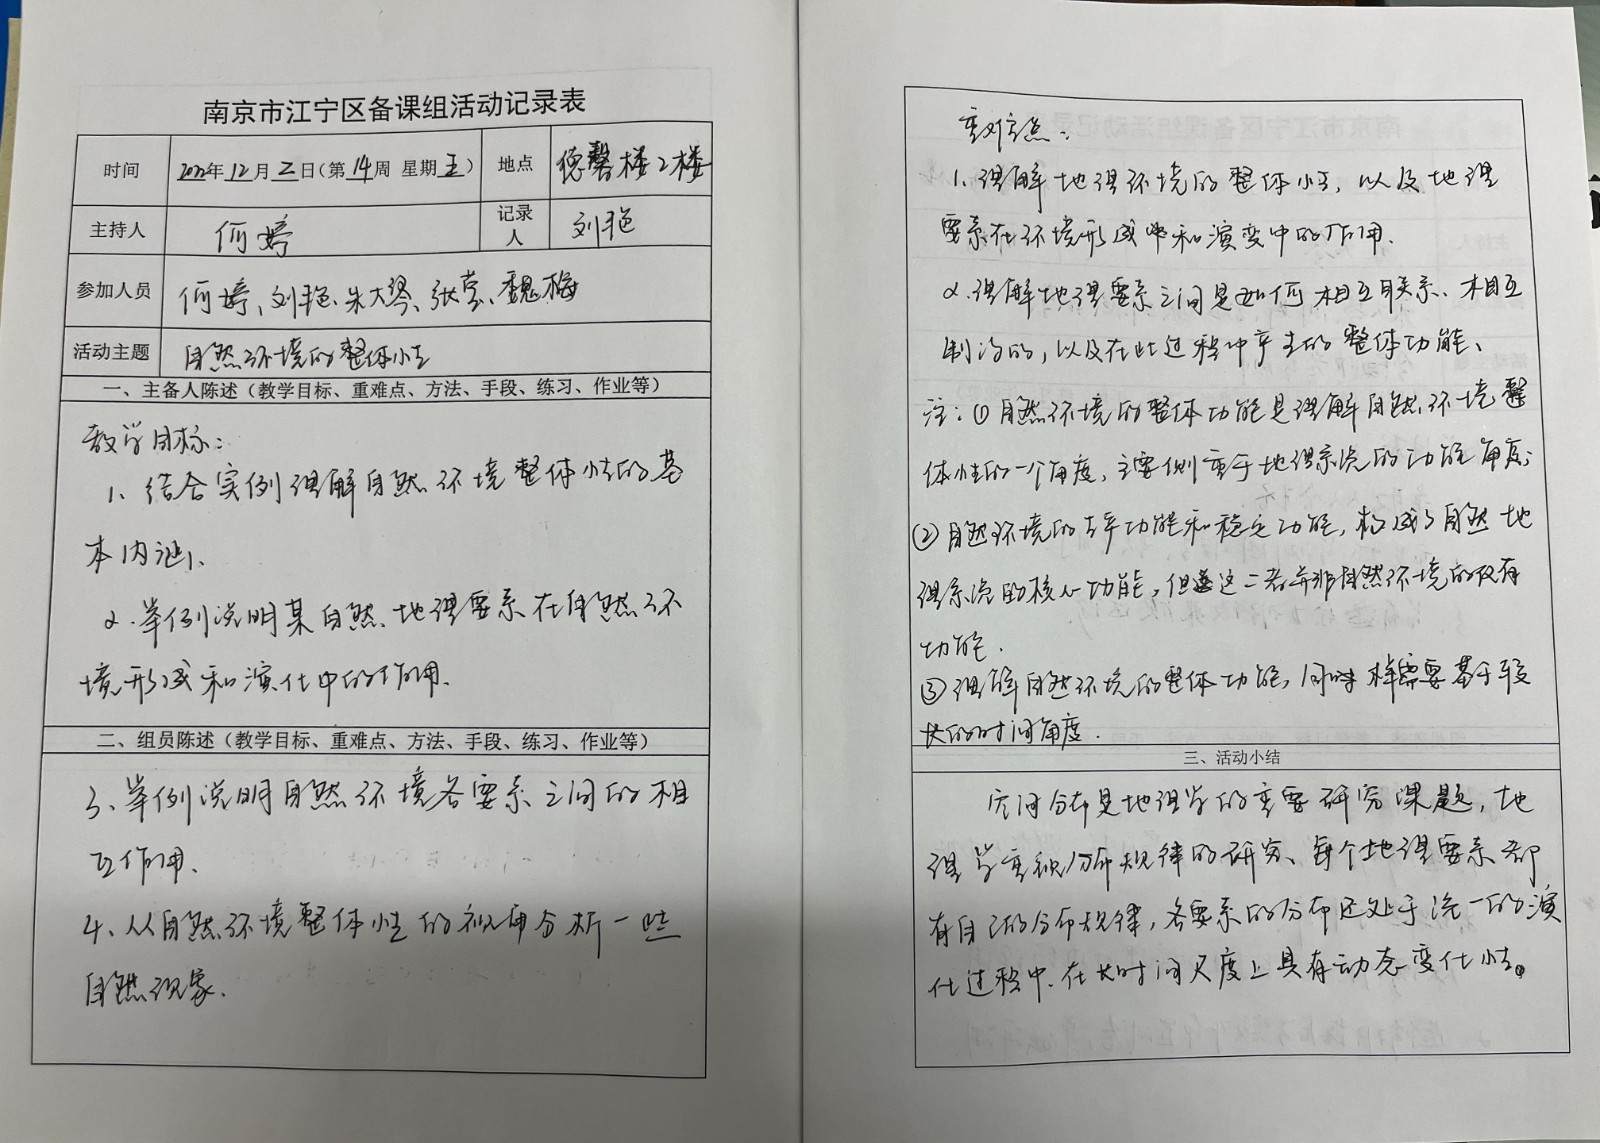 南京市江宁区备课组活动记录表
时间 2022年12月2日(第14周 星期五) 地点 德馨楼2楼
主持人 何婷 记录人 刘艳
参加人员 何婷、刘艳、朱大琴、张莹、魏梅
活动主题 自然环境的整体性
一、主备人陈述(教学目标、重难点、方法、手段、练习、作业等)
教学目标:
1、结合实例理解自然环境整体性的基
本内涵、
2.举例说明某自然地理要素在自然环
境形成和演化中的作用.
二、组员陈述(教学目标、重难点、方法、手段、练习、作业等)
3、举例说明自然环境各要素之间的相
互作用.
4、从自然环境整体性的视角分析一些
自然现象.
重难点:
1.理解地理环境的整体性,以及地理
要素在环境形成中和演变中的作用.
2.理解地理要素之间是如何相互联系、相互
制约的,以及在此过程中产生的整体功能、
注:①自然环境的整体功能是理解自然环境整
体性的一个角度,主要侧重于地理系统的功能角度;
②自然环境的生产功能和稳定功能,构成了自然地
理系统的核心功能,但这二者并非自然环境的所有
功能.
③理解自然环境的整体功能,同时样需要基于较
长的时间角度.
三、活动小结
空间分布是地理学的重要研究课题,地
理学重视分布规律的研究、每个地理要素都
有自己的分布规律,各要素的分布还处于统一的演
化过程中.在长时间尺度上具有动态变化性。